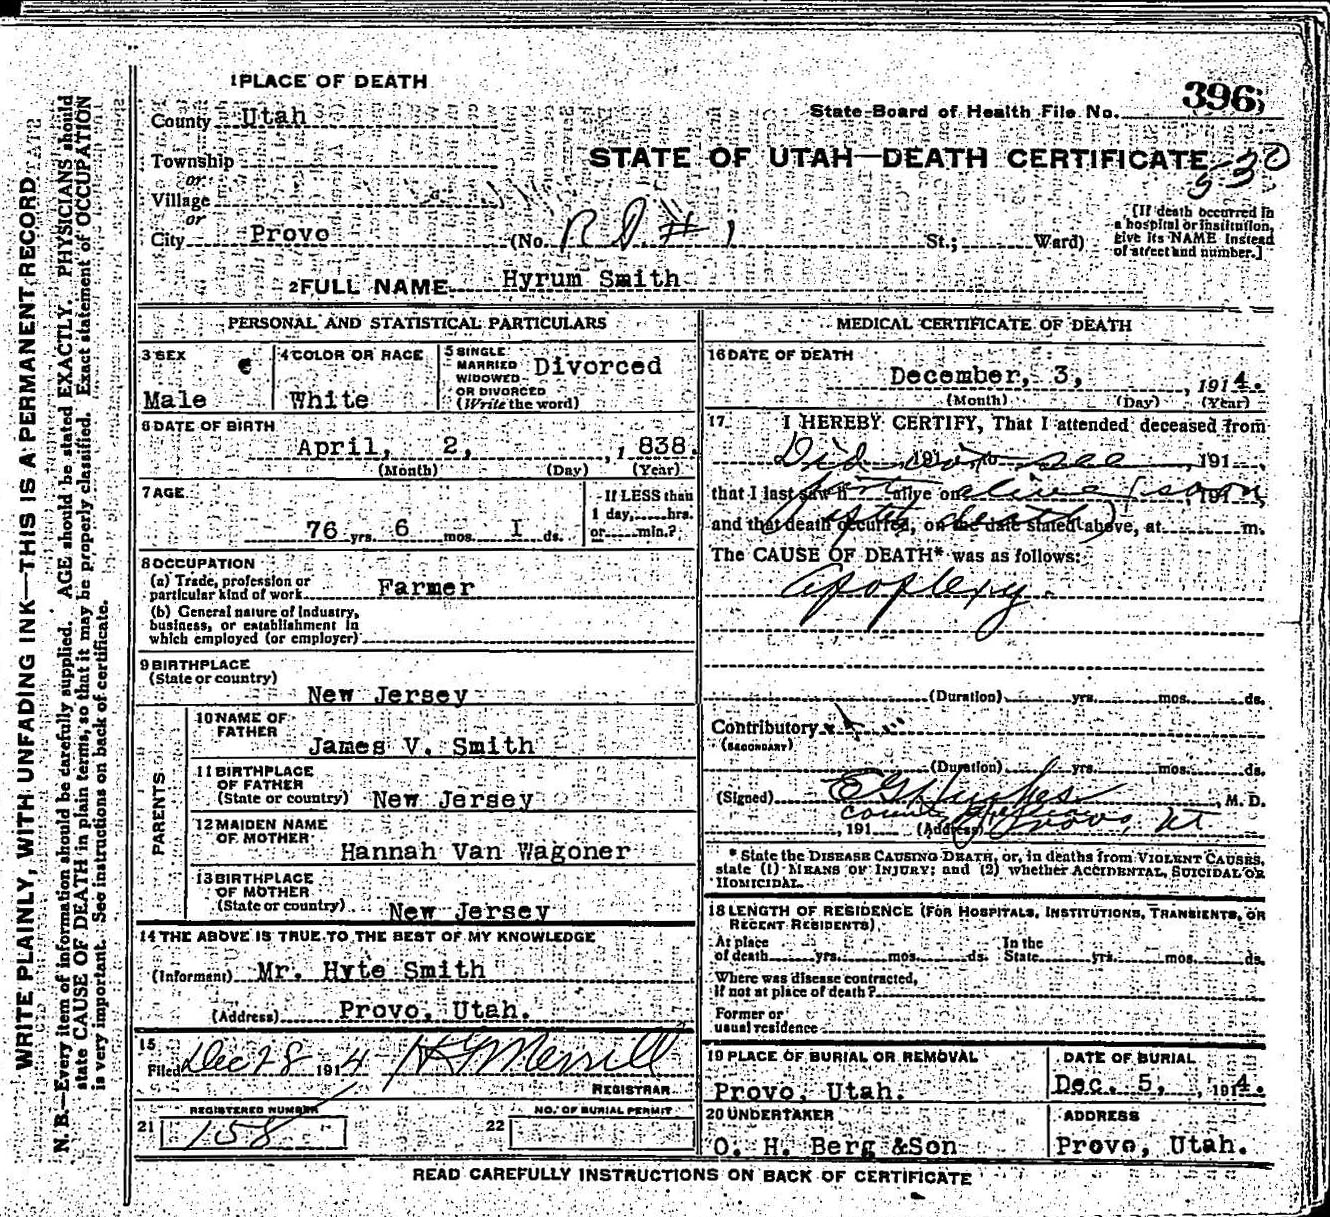 1 PLACE OF DEATH
County Utah
State Board of Health File No. 396
Township
or
STATE OF UTAH—DEATH CERTIFICATE
530
Village
or
City Provo (No. R D. # 1 St.; Ward)
[If death occurred in
a hospital or institution,
give its NAME instead
of street and number.]
2 FULL NAME Hyrum Smith
PERSONAL AND STATISTICAL PARTICULARS
3 SEX
Male
4 COLOR OR RACE
White
5 SINGLE
MARRIED
WIDOWED
OR DIVORCED
(Write the word)
Divorced
6 DATE OF BIRTH
April, 2, , 1838.
(Month) (Day) (Year)
7 AGE
76 yrs. 6 mos. I ds.
If LESS than
1 day, hrs.
or min.?
8 OCCUPATION
(a) Trade, profession or
particular kind of work Farmer
(b) General nature of industry,
business, or establishment in
which employed (or employer)
9 BIRTHPLACE
(State or country)
New Jersey
PARENTS
10 NAME OF
FATHER
James V. Smith
11 BIRTHPLACE
OF FATHER
(State or country) New Jersey
12 MAIDEN NAME
OF MOTHER
Hannah Van Wagoner
13 BIRTHPLACE
OF MOTHER
(State or country)
New Jersey
14 THE ABOVE IS TRUE TO THE BEST OF MY KNOWLEDGE
(Informant) Mr. Hyte Smith
(Address) Provo, Utah.
15
Filed Dec 28 1914 H G Merrill
REGISTRAR
REGISTERED NUMBER
21 158
NO. OF BURIAL PERMIT
22
MEDICAL CERTIFICATE OF DEATH
16 DATE OF DEATH
December, 3, , 1914.
(Month) (Day) (Year)
17 I HEREBY CERTIFY, That I attended deceased from
Did not see , 191 ,
that I last saw h alive on alive (soon , 191 ,
after death)
and that death occurred, on the date stated above, at m.
The CAUSE OF DEATH* was as follows:
apoplexy
(Duration) yrs. mos. ds.
Contributory
(SECONDARY)
(Duration) yrs. mos. ds.
(Signed) , M. D.
County
, 191 (Address) Provo, Ut
* State the DISEASE CAUSING DEATH, or, in deaths from VIOLENT CAUSES,
state (1) MEANS OF INJURY; and (2) whether ACCIDENTAL, SUICIDAL OR
HOMICIDAL.
18 LENGTH OF RESIDENCE (FOR HOSPITALS, INSTITUTIONS, TRANSIENTS, OR
RECENT RESIDENTS).
At place In the
of death yrs. mos. ds. State yrs. mos. ds.
Where was disease contracted,
if not at place of death?
Former or
usual residence
19 PLACE OF BURIAL OR REMOVAL
Provo, Utah.
DATE OF BURIAL
Dec. 5, , 1914.
20 UNDERTAKER
O. H. Berg &Son
ADDRESS
Provo, Utah.
READ CAREFULLY INSTRUCTIONS ON BACK OF CERTIFICATE
WRITE PLAINLY, WITH UNFADING INK—THIS IS A PERMANENT RECORD
N. B.—Every item of information should be carefully supplied. AGE should be stated EXACTLY. PHYSICIANS should
state CAUSE OF DEATH in plain terms, so that it may be properly classified. Exact statement of OCCUPATION
is very important. See instructions on back of certificate.